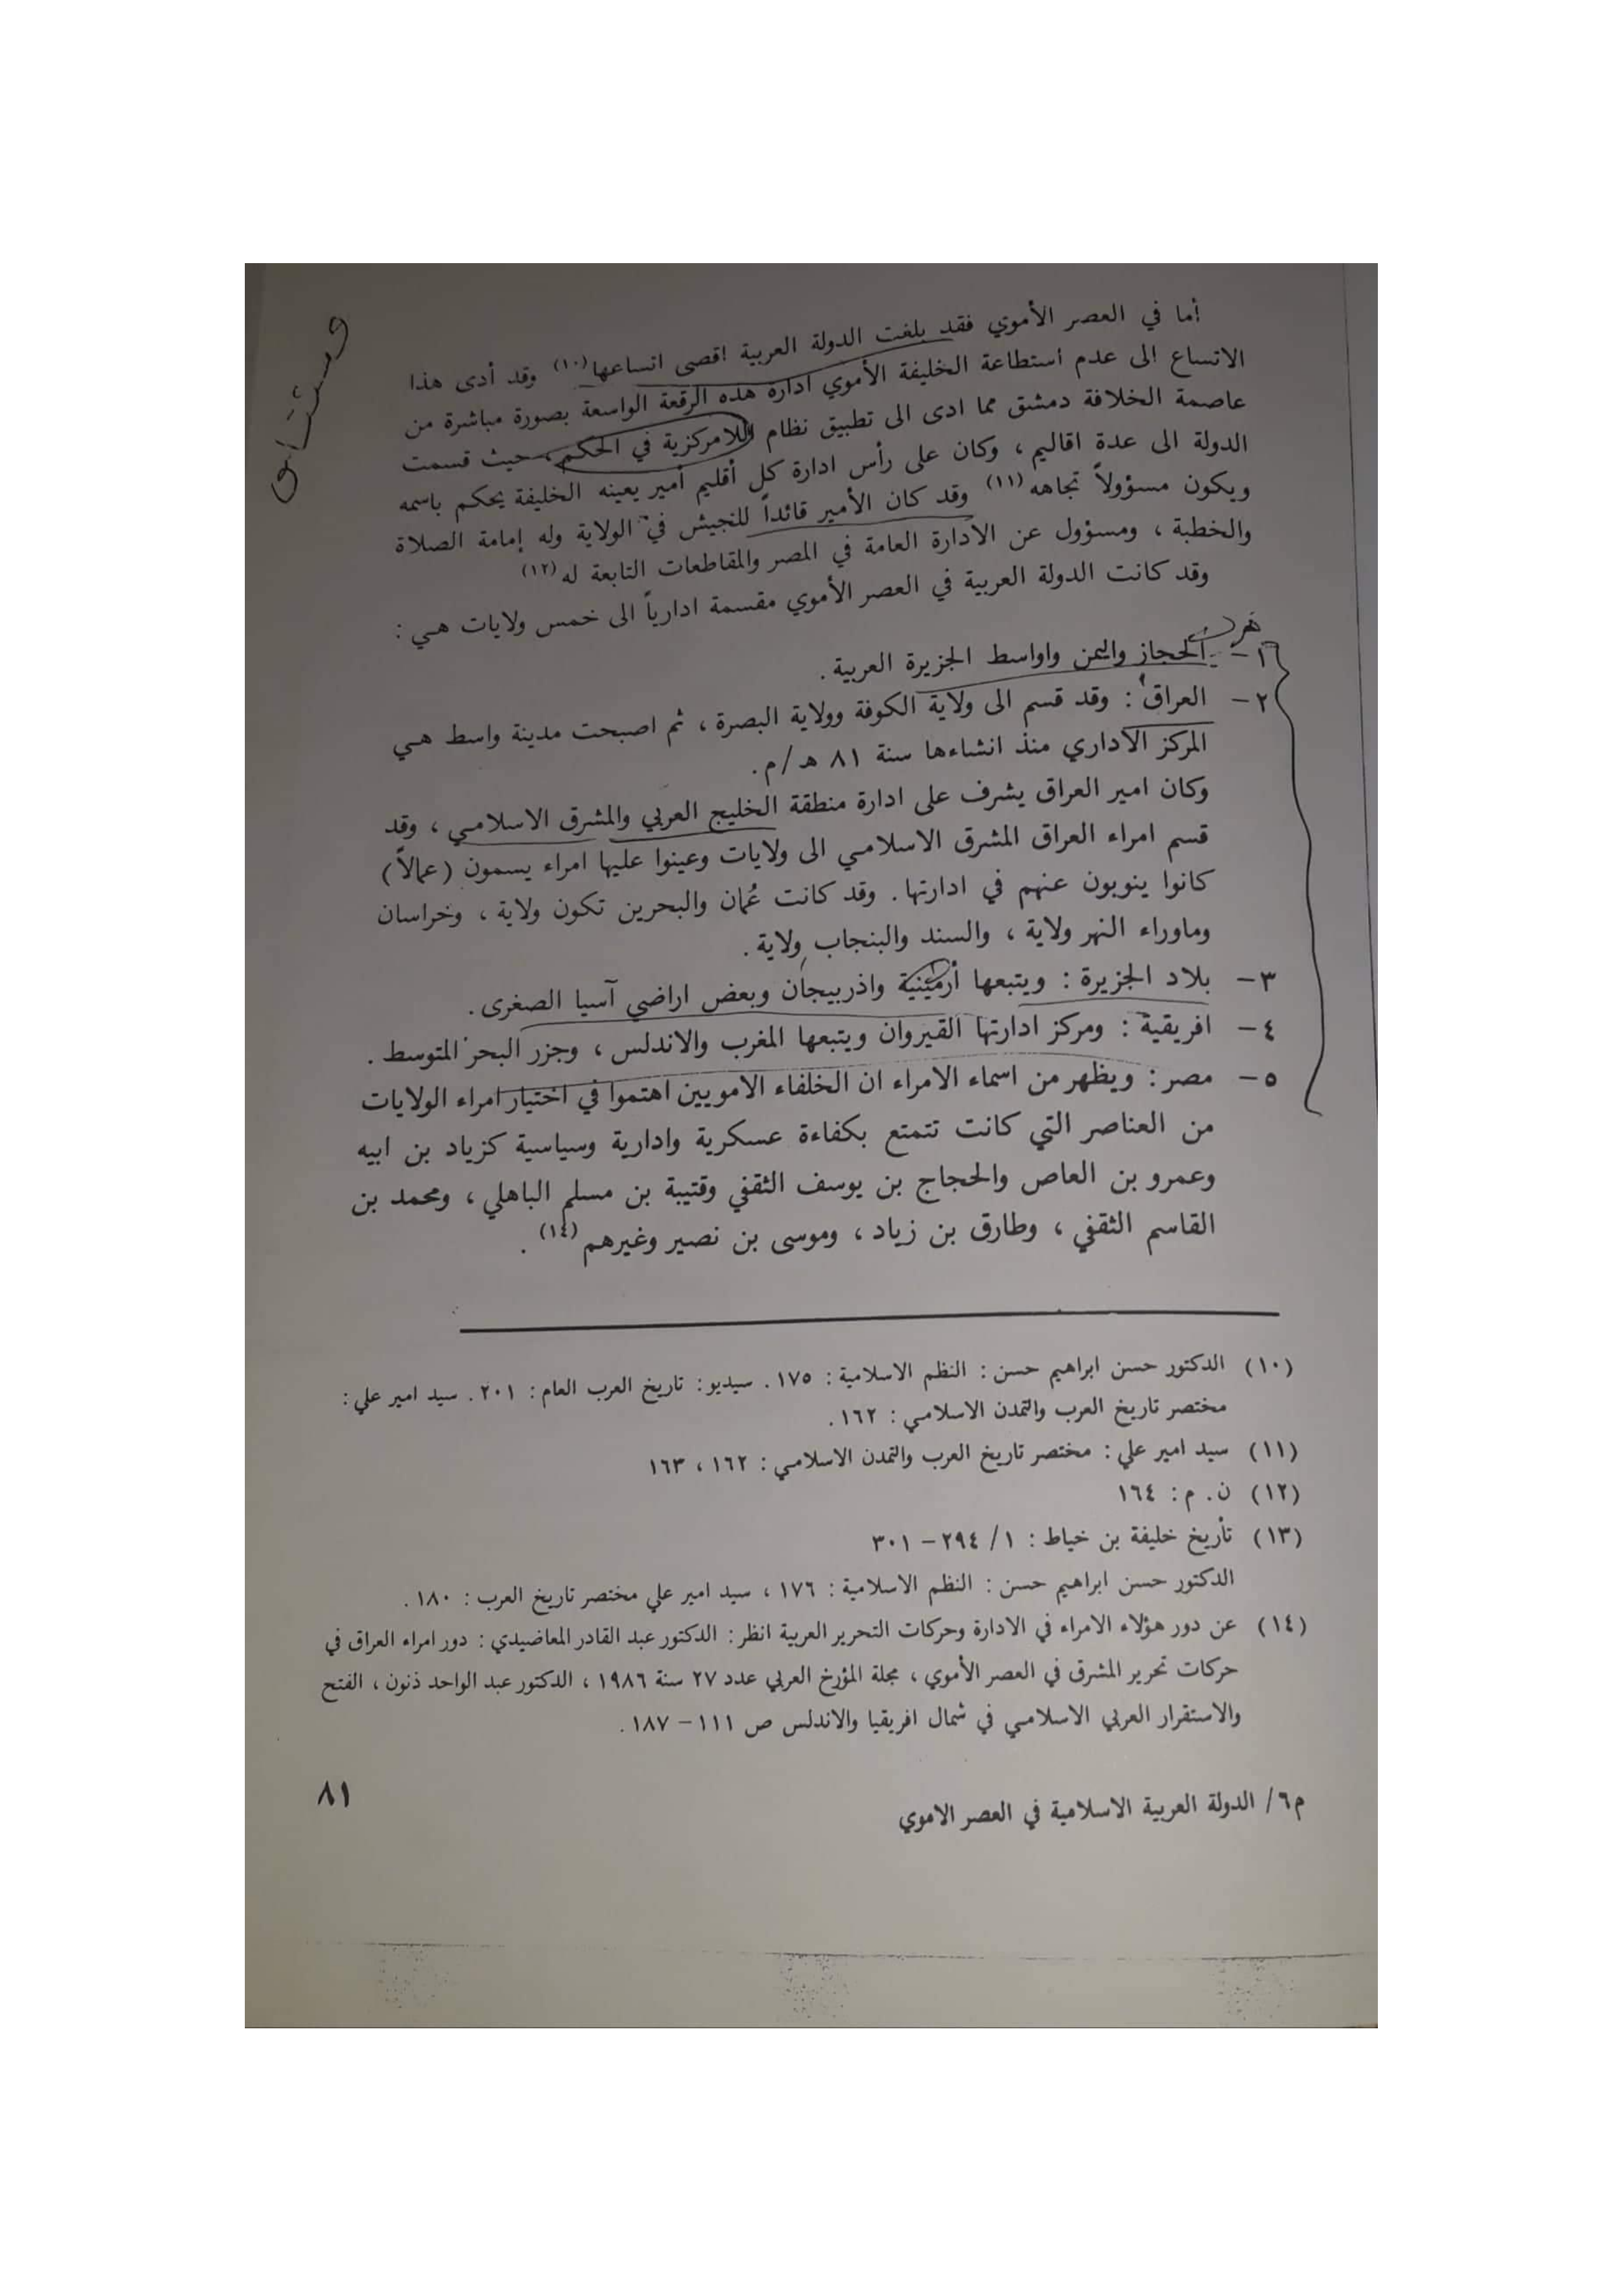 أما في العصر الأموي فقد بلغت الدولة العربية اقصى اتساعها (١٠) وقد أدى هذا
الاتساع الى عدم استطاعة الخليفة الأموي ادارة هذه الرقعة الواسعة بصورة مباشرة من
عاصمة الخلافة دمشق مما ادى الى تطبيق نظام اللامركزية في الحكم ، حيث قسمت
الدولة الى عدة اقاليم ، وكان على رأس ادارة كل أقليم أمير يعينه الخليفة يحكم باسمه
ويكون مسؤولاً تجاهه (١١) وقد كان الأمير قائداً للجيش في الولاية وله إمامة الصلاة
والخطبة ، ومسؤول عن الادارة العامة في المصر والمقاطعات التابعة له (١٢)
وقد كانت الدولة العربية في العصر الأموي مقسمة ادارياً الى خمس ولايات هي :
١ – الحجاز واليمن واواسط الجزيرة العربية .
٢ – العراق : وقد قسم الى ولاية الكوفة وولاية البصرة ، ثم اصبحت مدينة واسط هي
المركز الاداري منذ انشاءها سنة ٨١ هـ/م .
وكان امير العراق يشرف على ادارة منطقة الخليج العربي والمشرق الاسلامي ، وقد
قسم امراء العراق المشرق الاسلامي الى ولايات وعينوا عليها امراء يسمون (عمالاً)
كانوا ينوبون عنهم في ادارتها . وقد كانت عُمان والبحرين تكون ولاية ، وخراسان
وماوراء النهر ولاية ، والسند والبنجاب ولاية .
٣ – بلاد الجزيرة : ويتبعها أرمينية واذربيجان وبعض اراضي آسيا الصغرى .
٤ – افريقية : ومركز ادارتها القيروان ويتبعها المغرب والاندلس ، وجزر البحر المتوسط .
٥ – مصر : ويظهر من اسماء الامراء ان الخلفاء الامويين اهتموا في اختيار امراء الولايات
من العناصر التي كانت تتمتع بكفاءة عسكرية وادارية وسياسية كزياد بن ابيه
وعمرو بن العاص والحجاج بن يوسف الثقفي وقتيبة بن مسلم الباهلي ، ومحمد بن
القاسم الثقفي ، وطارق بن زياد ، وموسى بن نصير وغيرهم (١٤) .
(١٠) الدكتور حسن ابراهيم حسن : النظم الاسلامية : ١٧٥ . سيديو : تاريخ العرب العام : ٢٠١ . سيد امير علي :
مختصر تاريخ العرب والتمدن الاسلامي : ١٦٢ .
(١١) سيد امير علي : مختصر تاريخ العرب والتمدن الاسلامي : ١٦٢ ، ١٦٣
(١٢) ن . م : ١٦٤
(١٣) تأريخ خليفة بن خياط : ١ / ٢٩٤ – ٣٠١
الدكتور حسن ابراهيم حسن : النظم الاسلامية : ١٧٦ ، سيد امير علي مختصر تاريخ العرب : ١٨٠ .
(١٤) عن دور هؤلاء الامراء في الادارة وحركات التحرير العربية انظر : الدكتور عبد القادر المعاضيدي : دور امراء العراق في
حركات تحرير المشرق في العصر الأموي ، مجلة المؤرخ العربي عدد ٢٧ سنة ١٩٨٦ ، الدكتور عبد الواحد ذنون ، الفتح
والاستقرار العربي الاسلامي في شمال افريقيا والاندلس ص ١١١ – ١٨٧ .
م ٦ / الدولة العربية الاسلامية في العصر الاموي
٨١